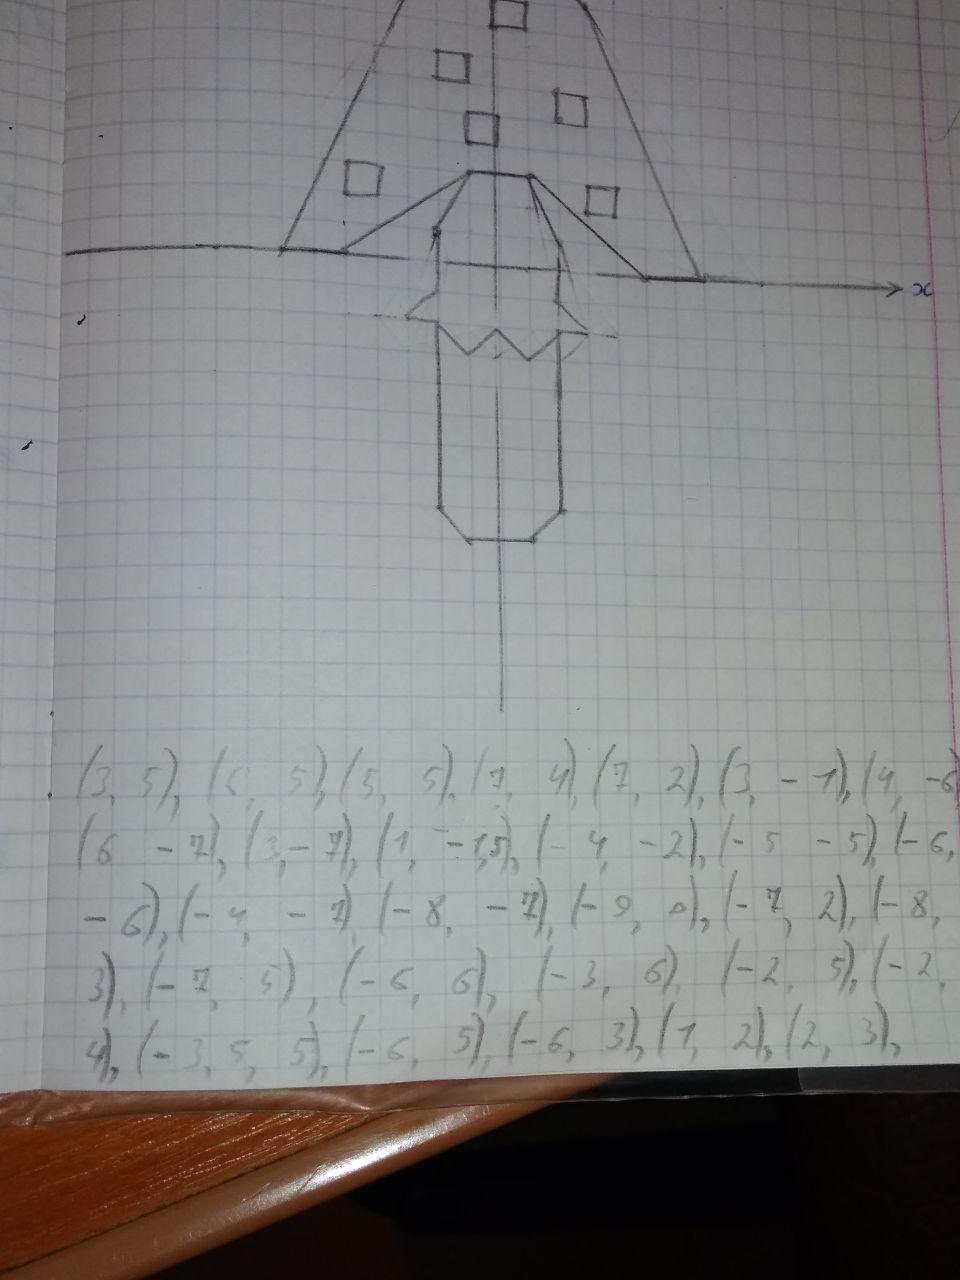 x
(3, 5), (6, 5), (5, 5), (7, 4), (7, 2), (3, -1), (4, -6)
(6 -7), (3, -7), (1, -1,5), (-4, -2), (-5 -5), (-6,
-6), (-4, -7) (-8, -7), (-9, 0), (-7, 2), (-8,
3), (-7, 5), (-6, 6), (-3, 6), (-2, 5), (-2,
4), (-3,5, 5), (-6, 5), (-6, 3), (1, 2), (2, 3),